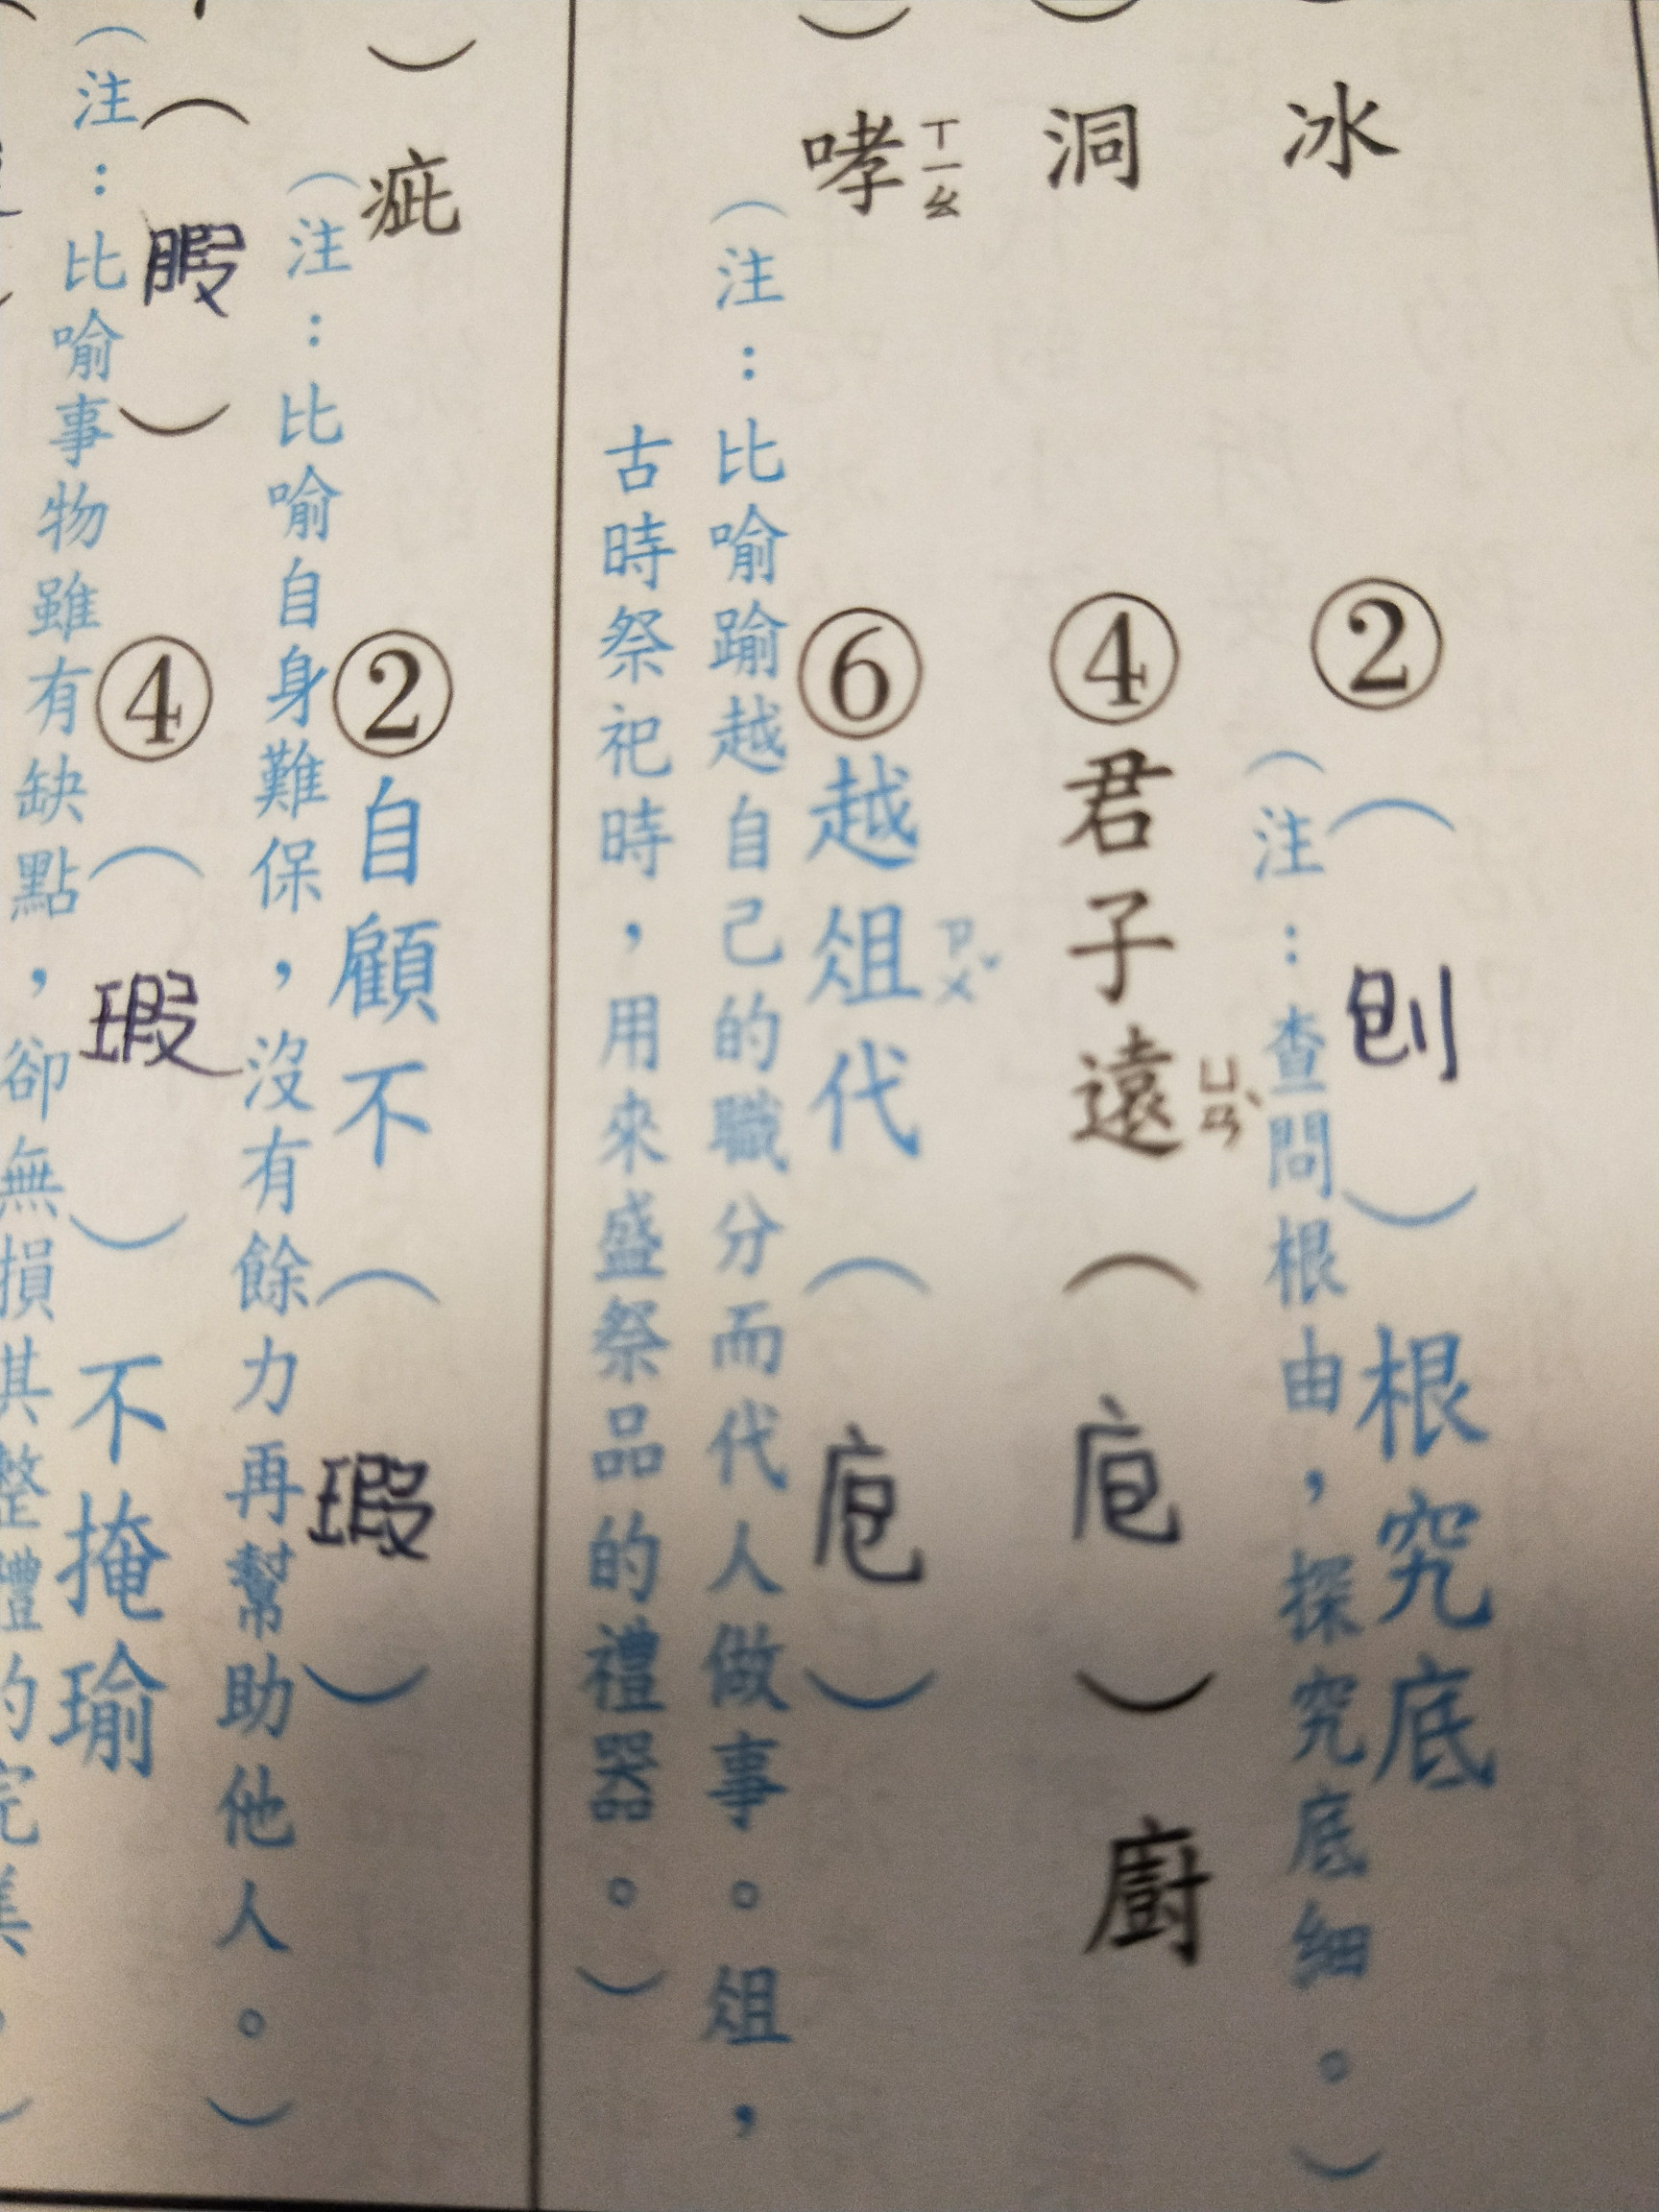 冰
②（刨）根究底
（注：查問根由，探究底細。）
洞
④君子遠ㄩㄢˋ（庖）廚
）哮ㄒㄧㄠ
⑥越俎ㄗㄨˇ代（庖）
（注：比喻踰越自己的職分而代人做事。俎，
古時祭祀時，用來盛祭品的禮器。）
）疵
②自顧不（瑕）
（注：比喻自身難保，沒有餘力再幫助他人。）
（暇）
④（瑕）不掩瑜
（注：比喻事物雖有缺點，卻無損其整體的完美。）